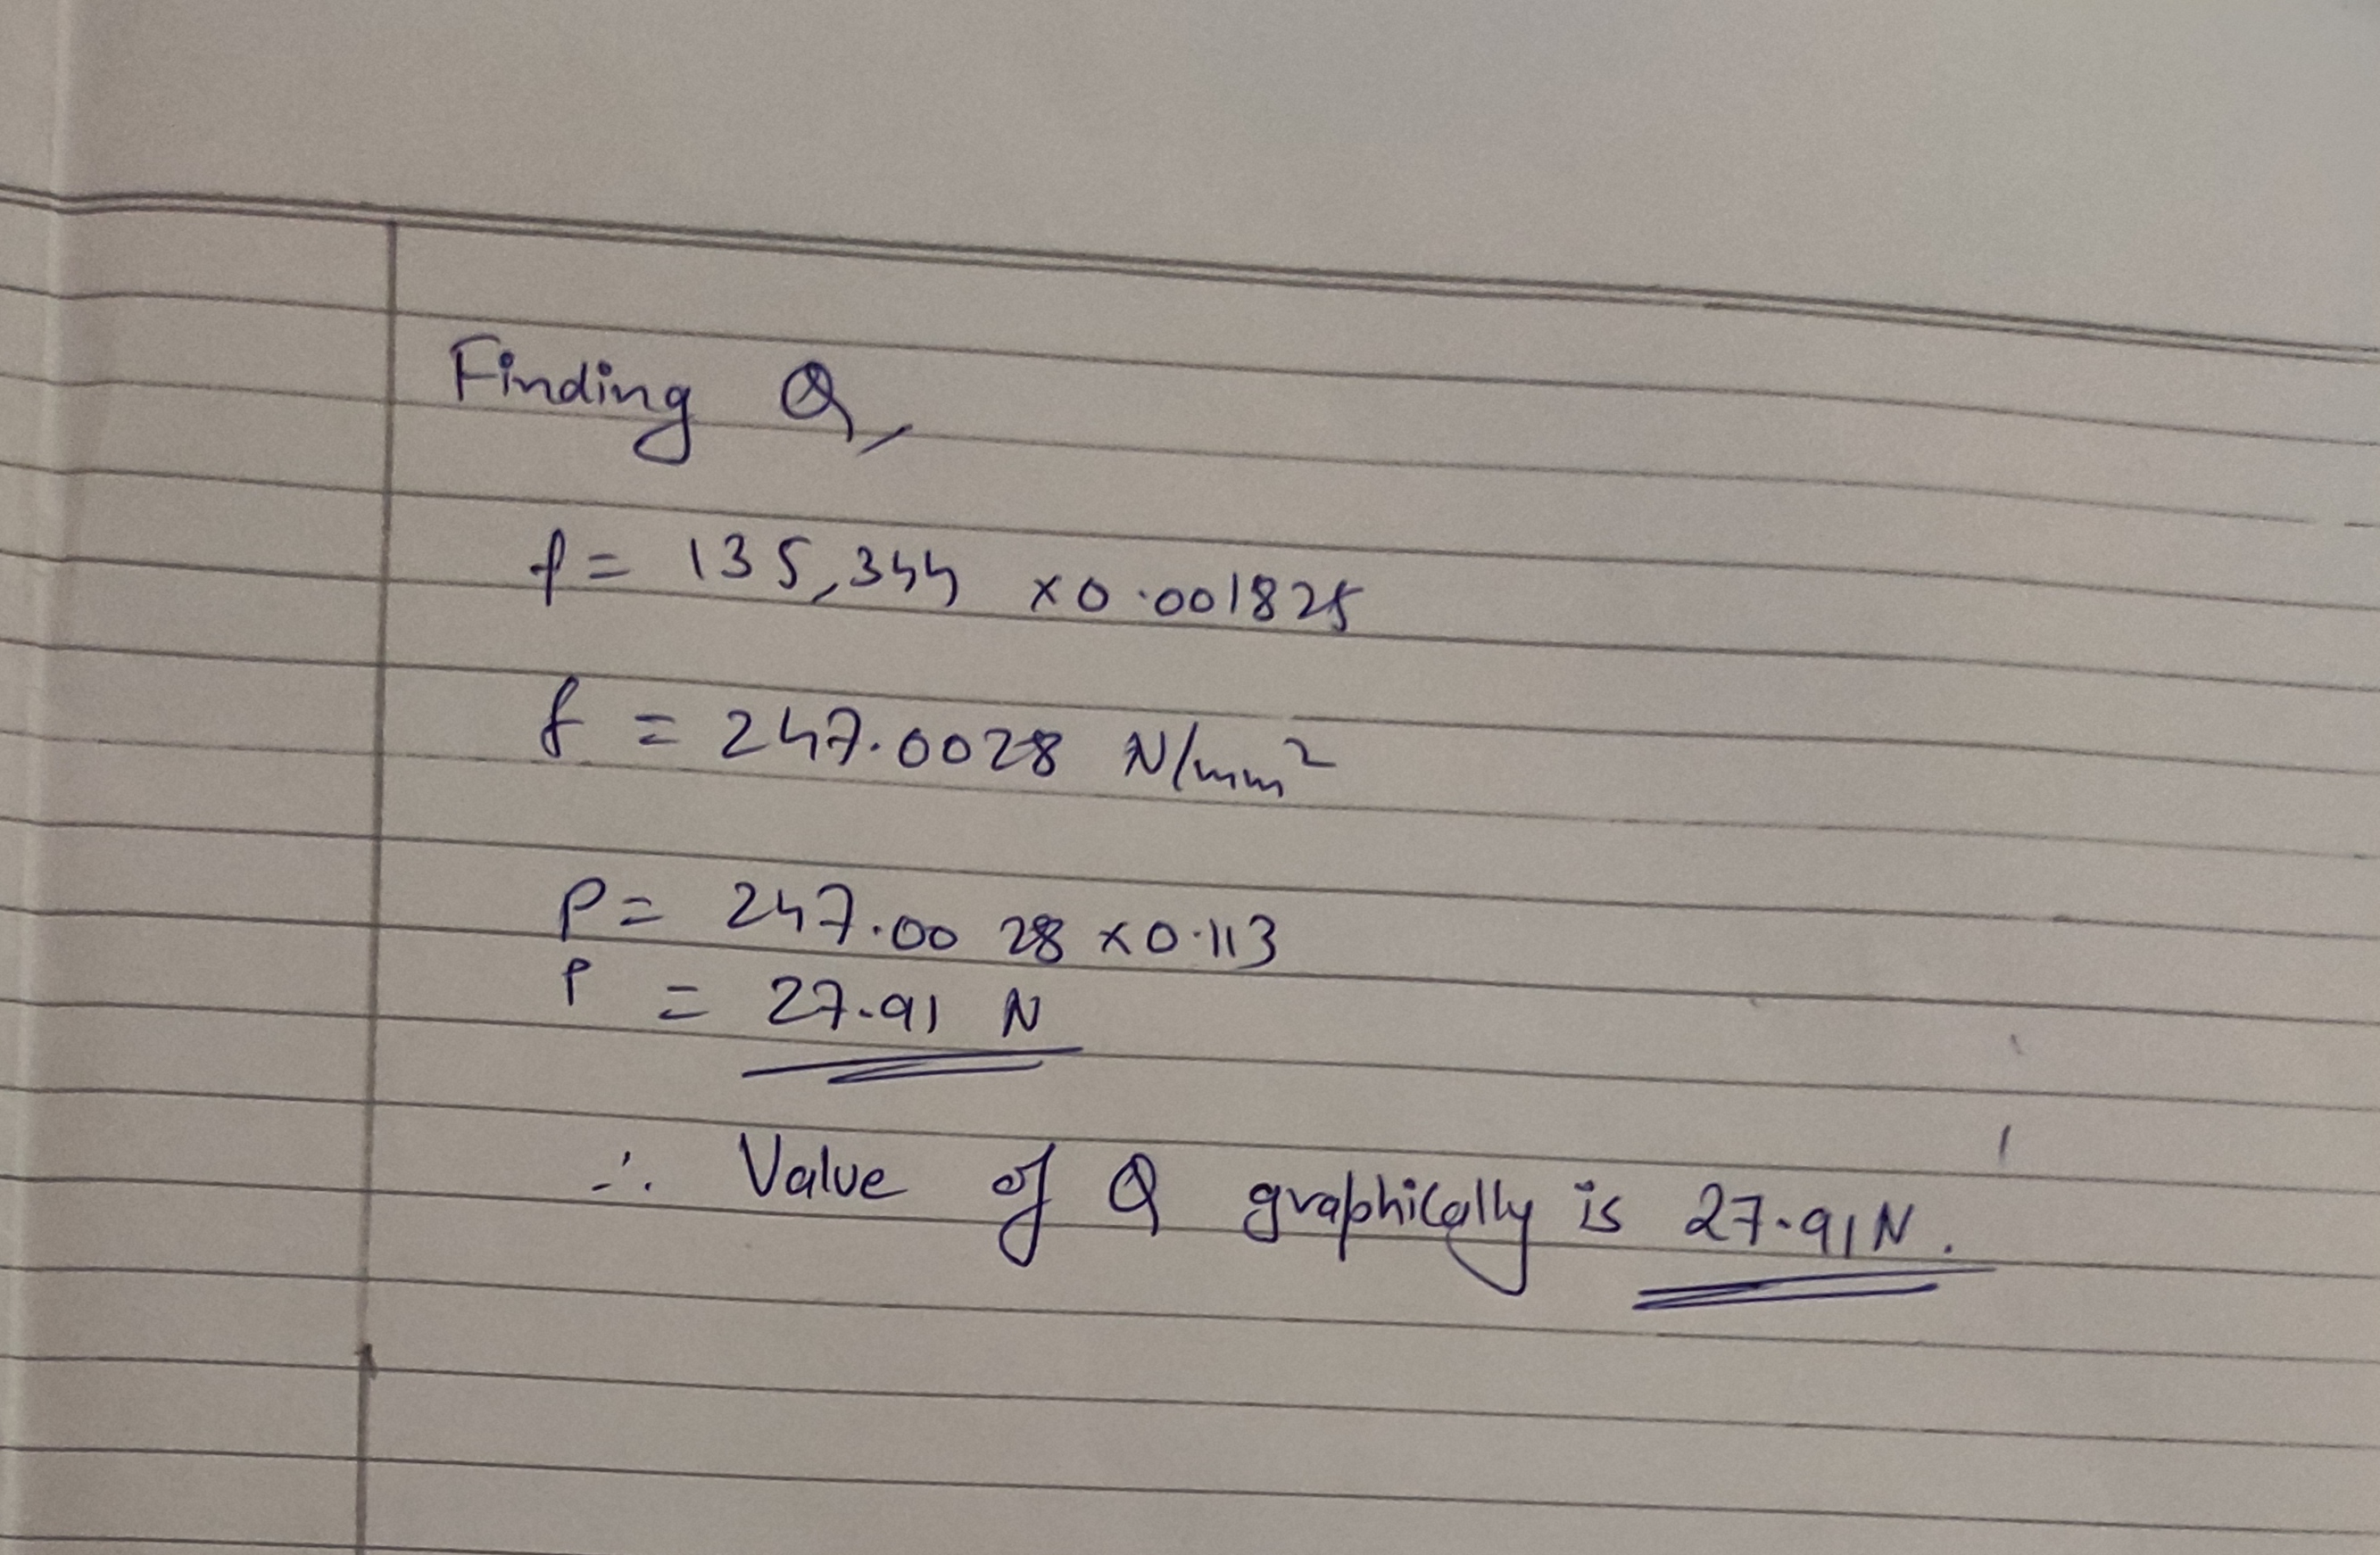 Finding Q,
f = 135,344 x 0.001825
f = 247.0028 N/mm²
P = 247.00 28 x 0.113
P = 27.91 N
∴ Value of Q graphically is 27.91N.